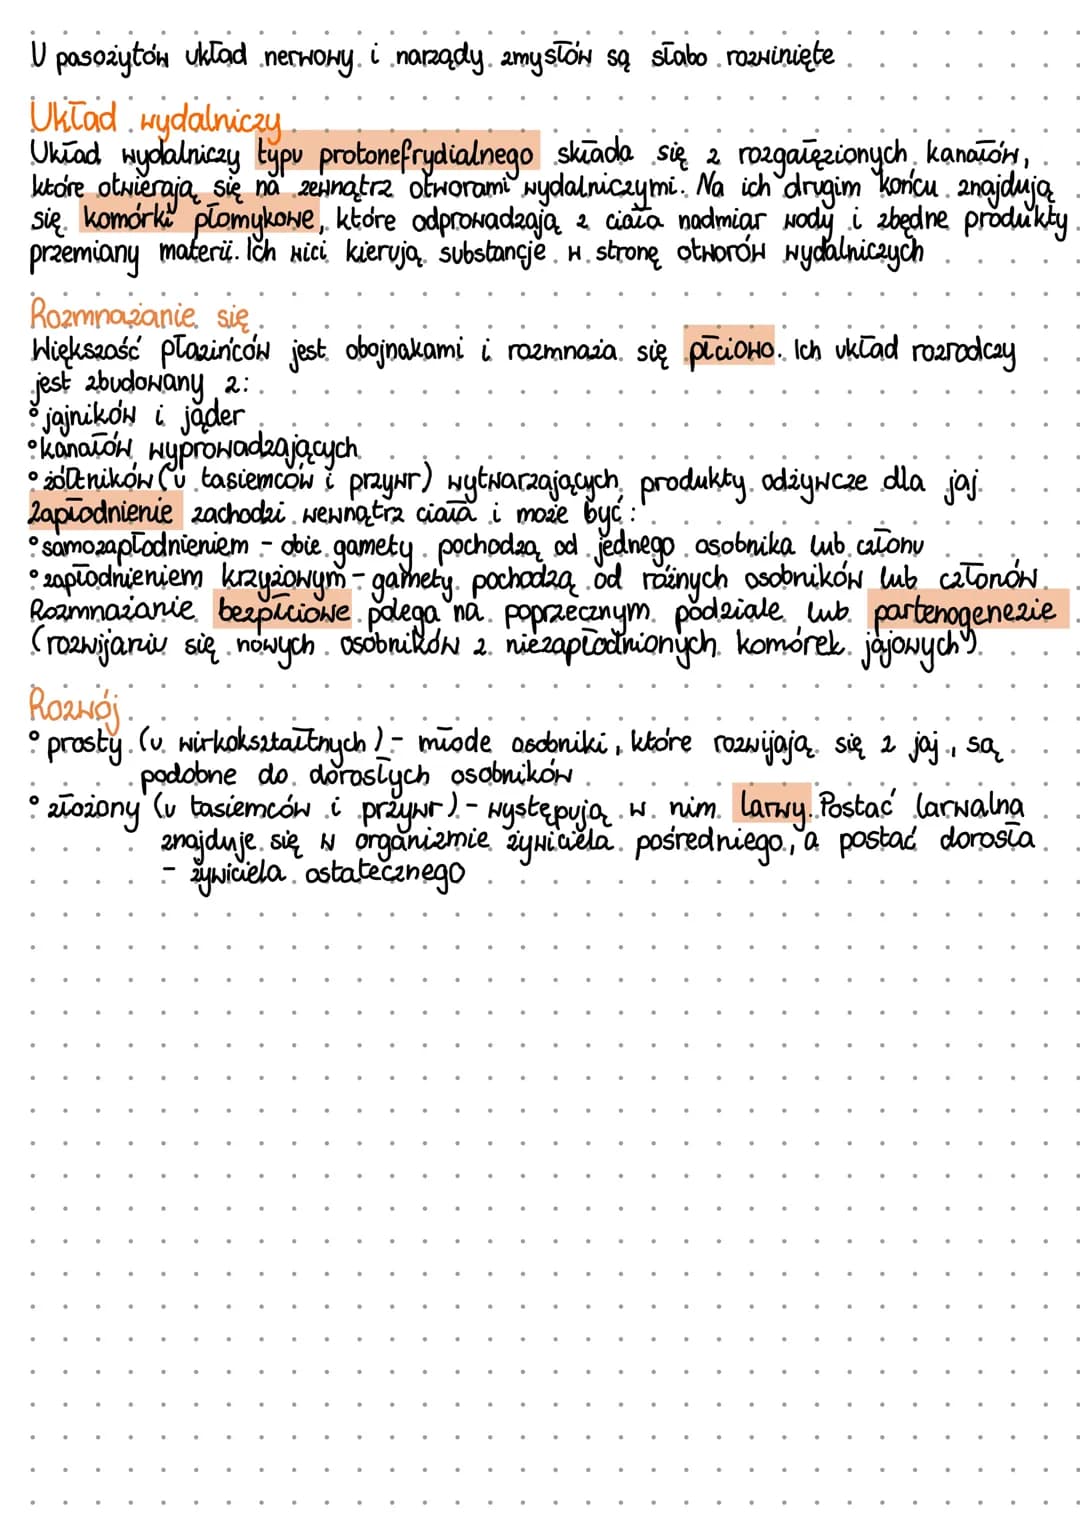 U pasożytów układ nerwowy i narządy zmysłów są słabo rozwinięte
Układ wydalniczy
Układ wydalniczy typu protonefrydialnego składa się z rozgałęzionych kanałów,
które otwierają się na zewnątrz otworami wydalniczymi. Na ich drugim końcu znajdują
się komórki płomykowe, które odprowadzają z ciała nadmiar wody i zbędne produkty
przemiany materii. Ich wici kierują substancje w stronę otworów wydalniczych
Rozmnażanie się
Większość płazińców jest obojnakami i rozmnaża się płciowo. Ich układ rozrodczy
jest zbudowany z:
° jajników i jąder
° kanałów wyprowadzających
° żółtników (u tasiemców i przywr) wytwarzających produkty odżywcze dla jaj
Zapłodnienie zachodzi wewnątrz ciała i może być:
° samozapłodnieniem - obie gamety pochodzą od jednego osobnika lub członu
° zapłodnieniem krzyżowym - gamety pochodzą od różnych osobników lub członów
Rozmnażanie bezpłciowe polega na poprzecznym podziale lub partenogenezie
(rozwijaniu się nowych osobników z niezapłodnionych komórek jajowych).
Rozwój
° prosty (u wirkokształtnych) - młode osobniki, które rozwijają się z jaj, są
podobne do dorosłych osobników
° złożony (u tasiemców i przywr) - występują w nim larwy. Postać larwalna
znajduje się w organizmie żywiciela pośredniego, a postać dorosła
- żywiciela ostatecznego